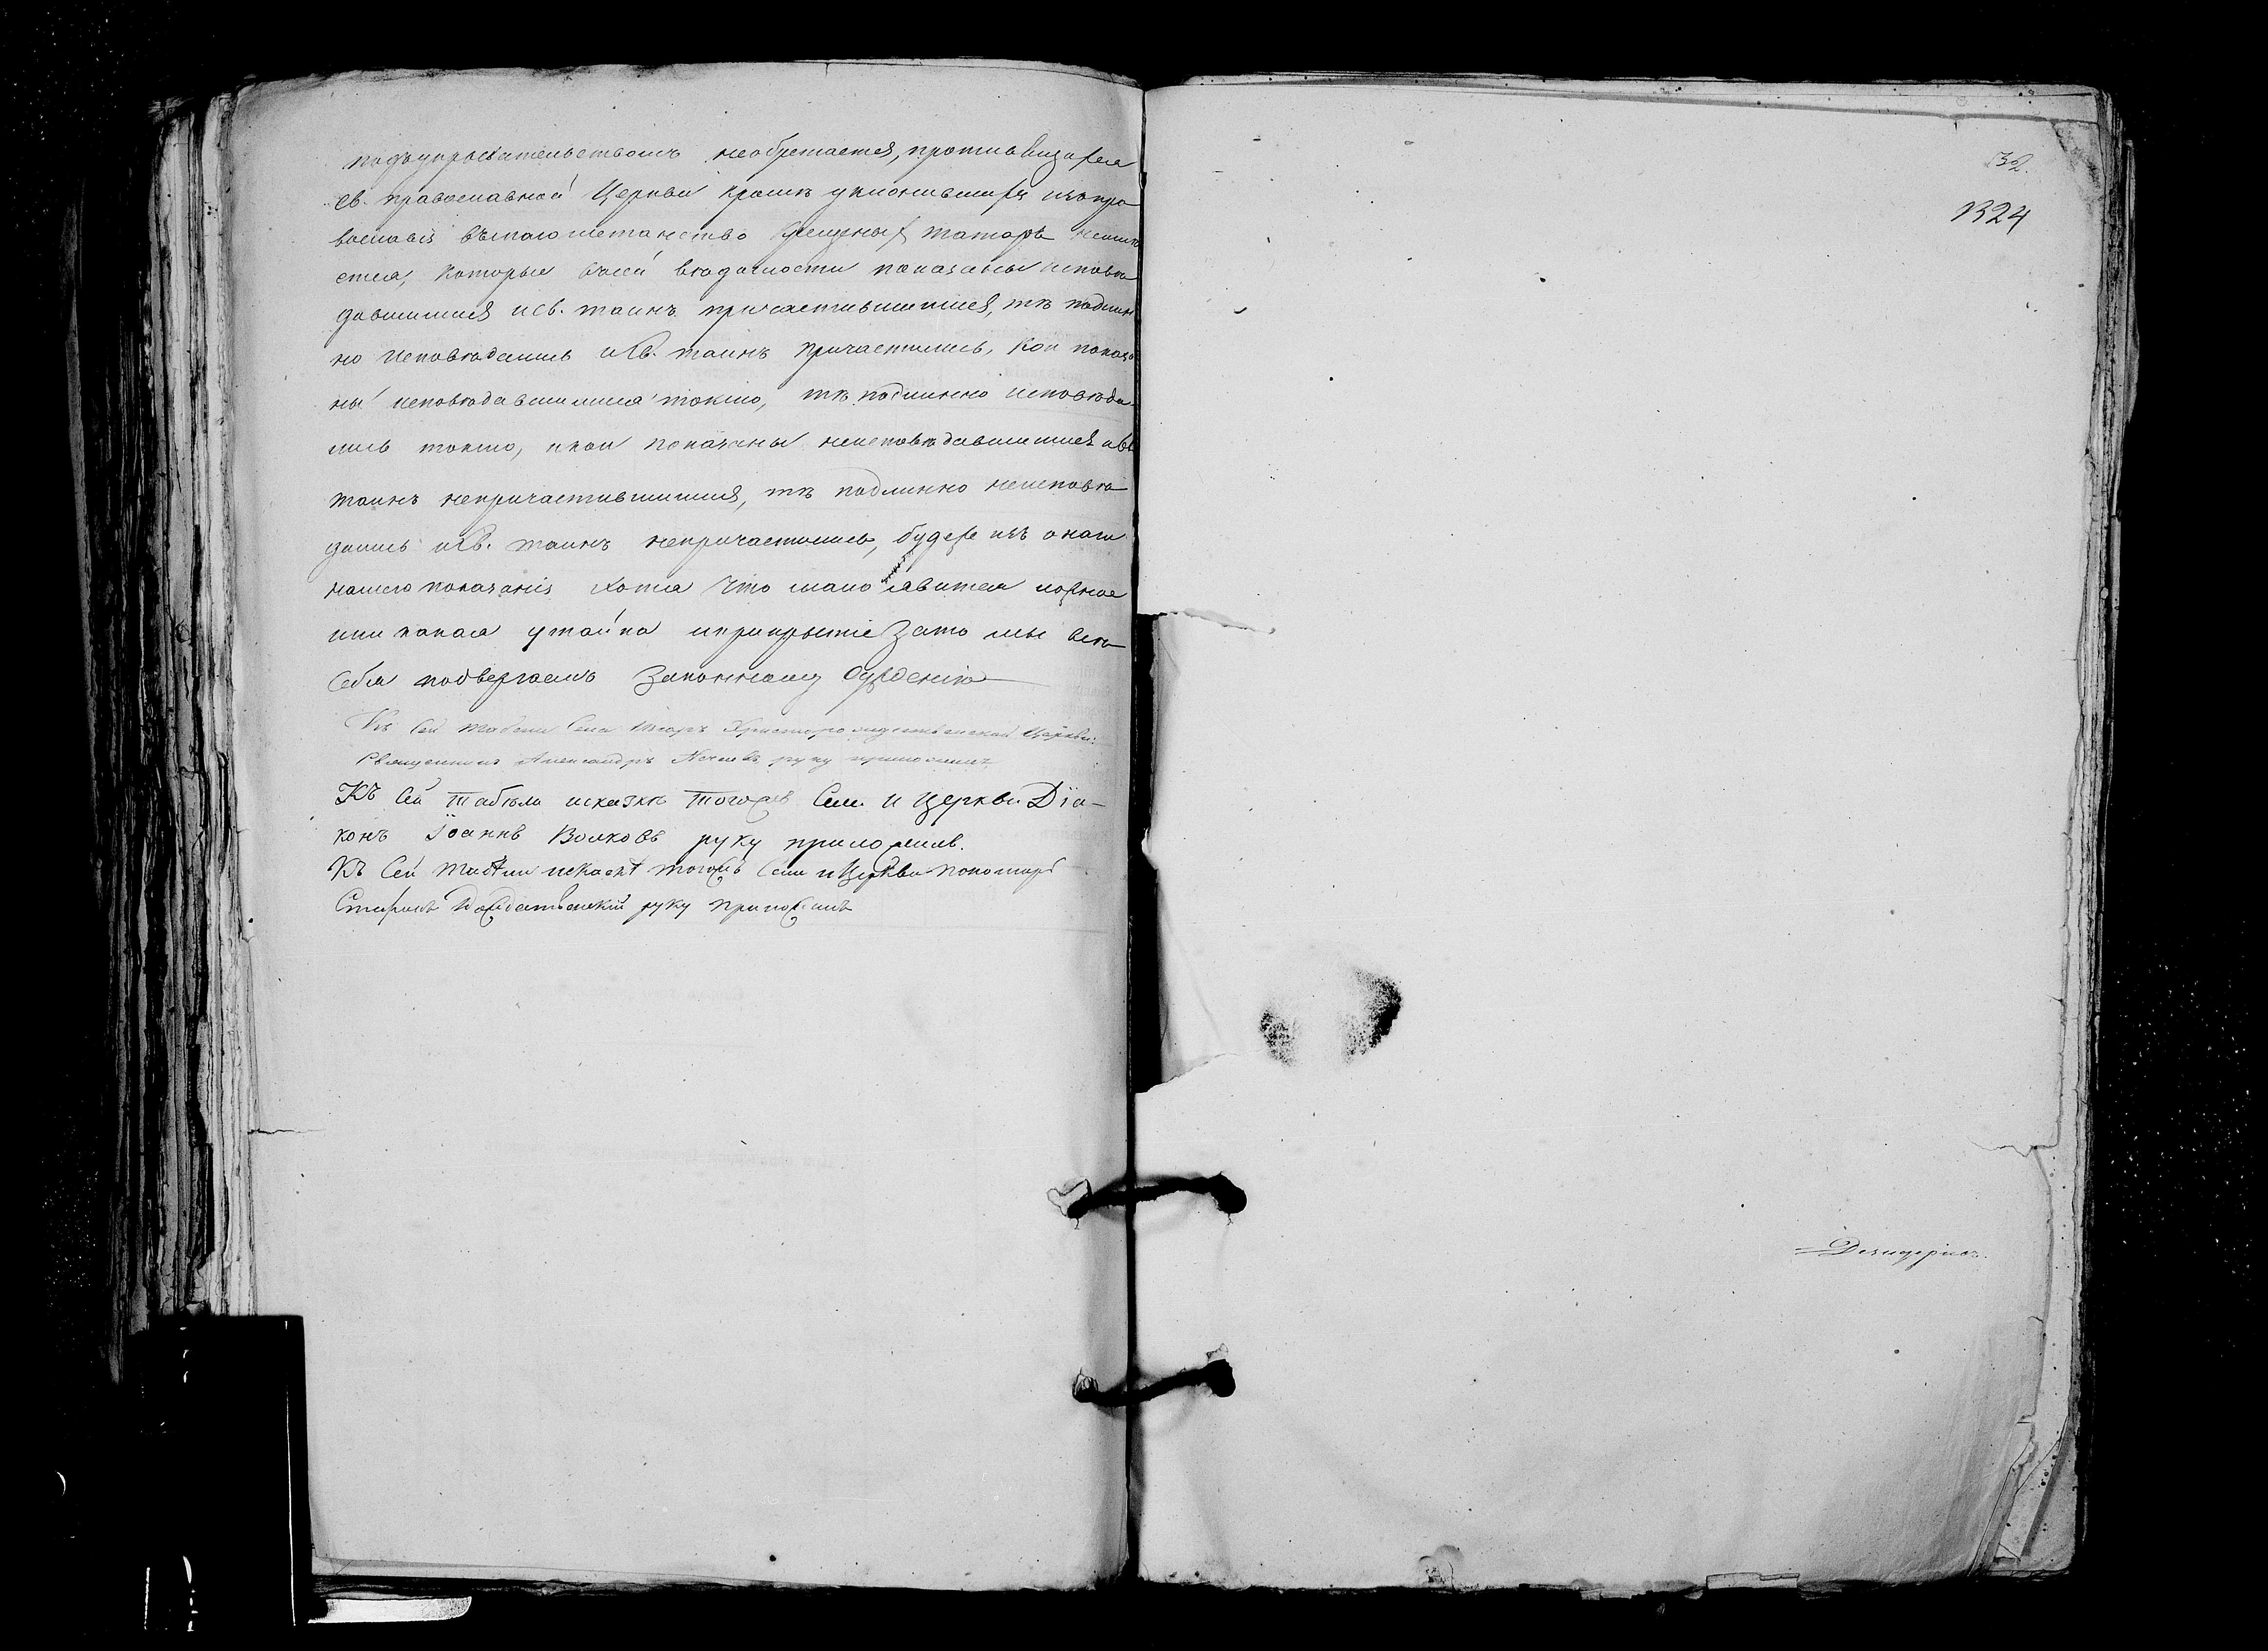 подъукрывательствомъ необретается, противниковже
св. православной Церкви кромѣ уклонившихся изъпра
вославія въмагометанство крещеныхъ татаръ неимѣ
ется, которые въсей вѣдомости показаны исповѣ
давшимися исв. таинъ причастившимися, тѣ подлин
но исповѣдались исв. таинъ причастились, кои показа
ны исповѣдавшимися токмо, тѣ подлинно исповѣда
лись токмо, икои показаны неисповѣдавшимися исв.
таинъ непричастившимися, тѣ подлинно неисповѣ
дались исв. таинъ непричастились, будеже изъ онаго
нашего показанія хотя что мало явится ложное
или какая утайка иприкрытіе зато мы всѣ
себя подвергаемъ законному сужденію
Къ сей табели села Христорождественской Церкви
Священникъ Александръ руку приложилъ
Къ сей табѣли исказкѣ тогожъ села и церкви Діа-
конъ Іоаннъ Волковъ руку приложилъ.
Къ сей табѣли исказкѣ тогожъ села и Церкви пономарь
Стефанъ руку приложилъ
32.
1324